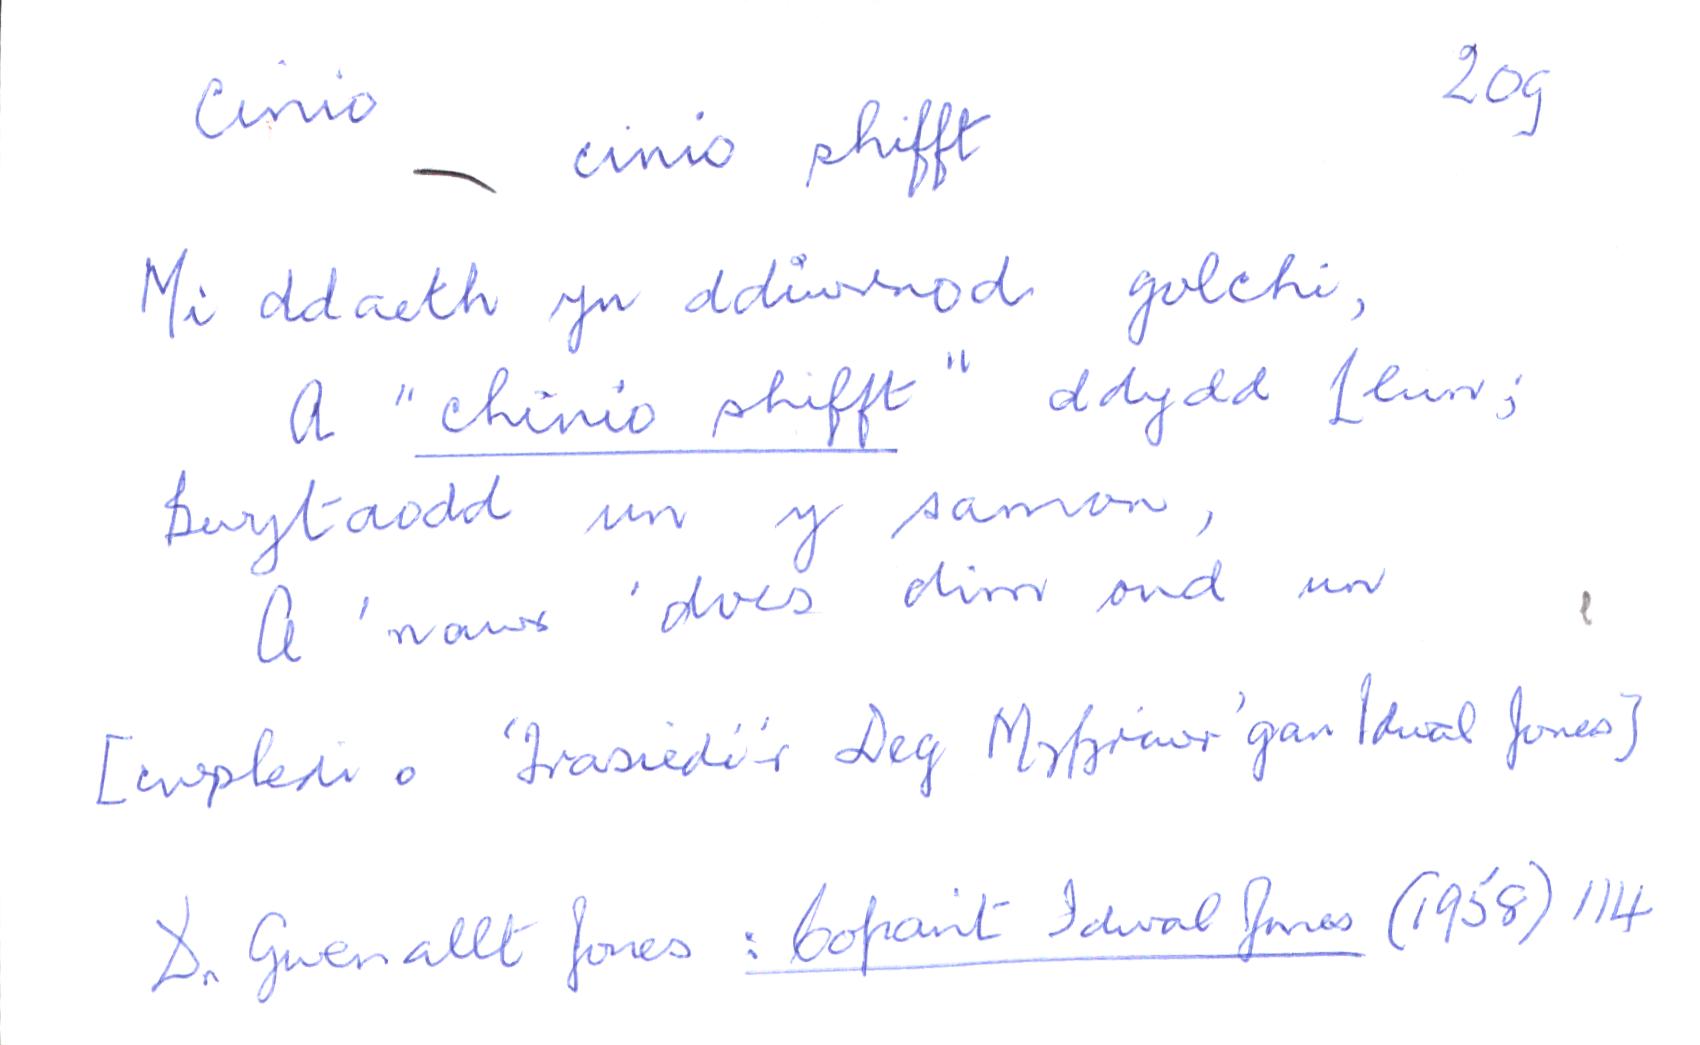 Cinio 20g
cinio shifft
Mi ddaeth yn ddiwrnod golchi,
A "chinio shifft" ddydd Llun;
Bwytaodd un y samon,
A 'nawr 'does dim ond un
[cwpledi o 'Trasiedi'r Deg Mysgrawr' gan Idwal Jones]
D. Gwenallt Jones : Cofiant Idwal Jones (1958) 114